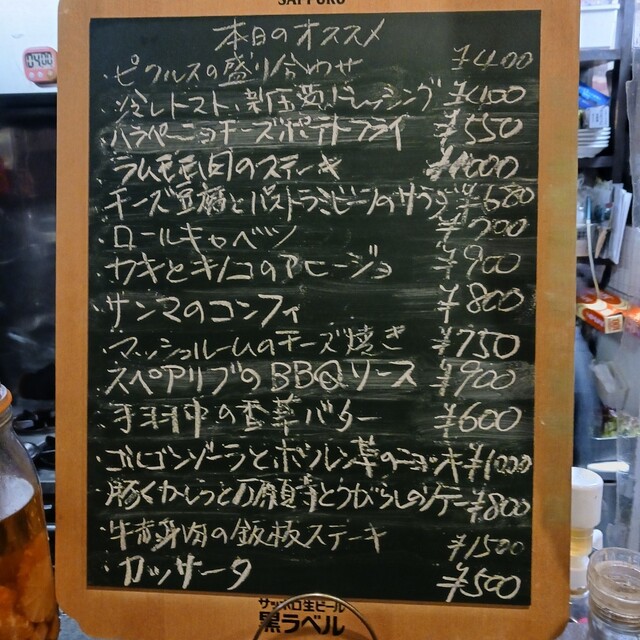 SAPPORO
本日のオススメ
・ピクルスの盛り合わせ ¥400
・冷しトマト、新玉葱ドレッシング ¥400
・ハラペーニョチーズポテトフライ ¥550
・ラムモモ肉のステーキ ¥1000
・チーズ豆腐とパストラミビーフのサラダ ¥680
・ロールキャベツ ¥700
・カキとキノコのアヒージョ ¥900
・サンマのコンフィ ¥800
・マッシュルームのチーズ焼き ¥750
・スペアリブのBBQソース ¥900
・手羽中の香草バター ¥600
・ゴルゴンゾーラとホウレン草のニョッキ ¥1000
・豚くかしらと万願寺とうがらしのソテー ¥800
・牛赤身肉の鉄板ステーキ ¥1500
・カッサータ ¥500
サッポロ生ビール
黒ラベル